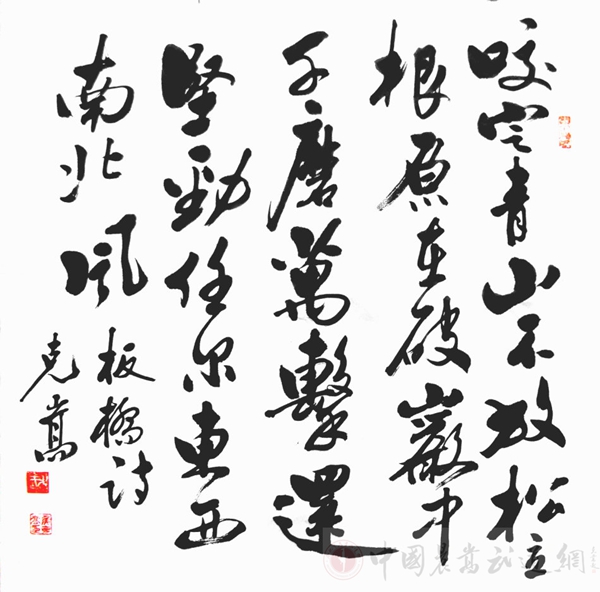 咬定青山不放松立
根原在破巖中
千磨萬擊還
堅勁任尔東西
南北風
板橋詩
克嵩
中國
網